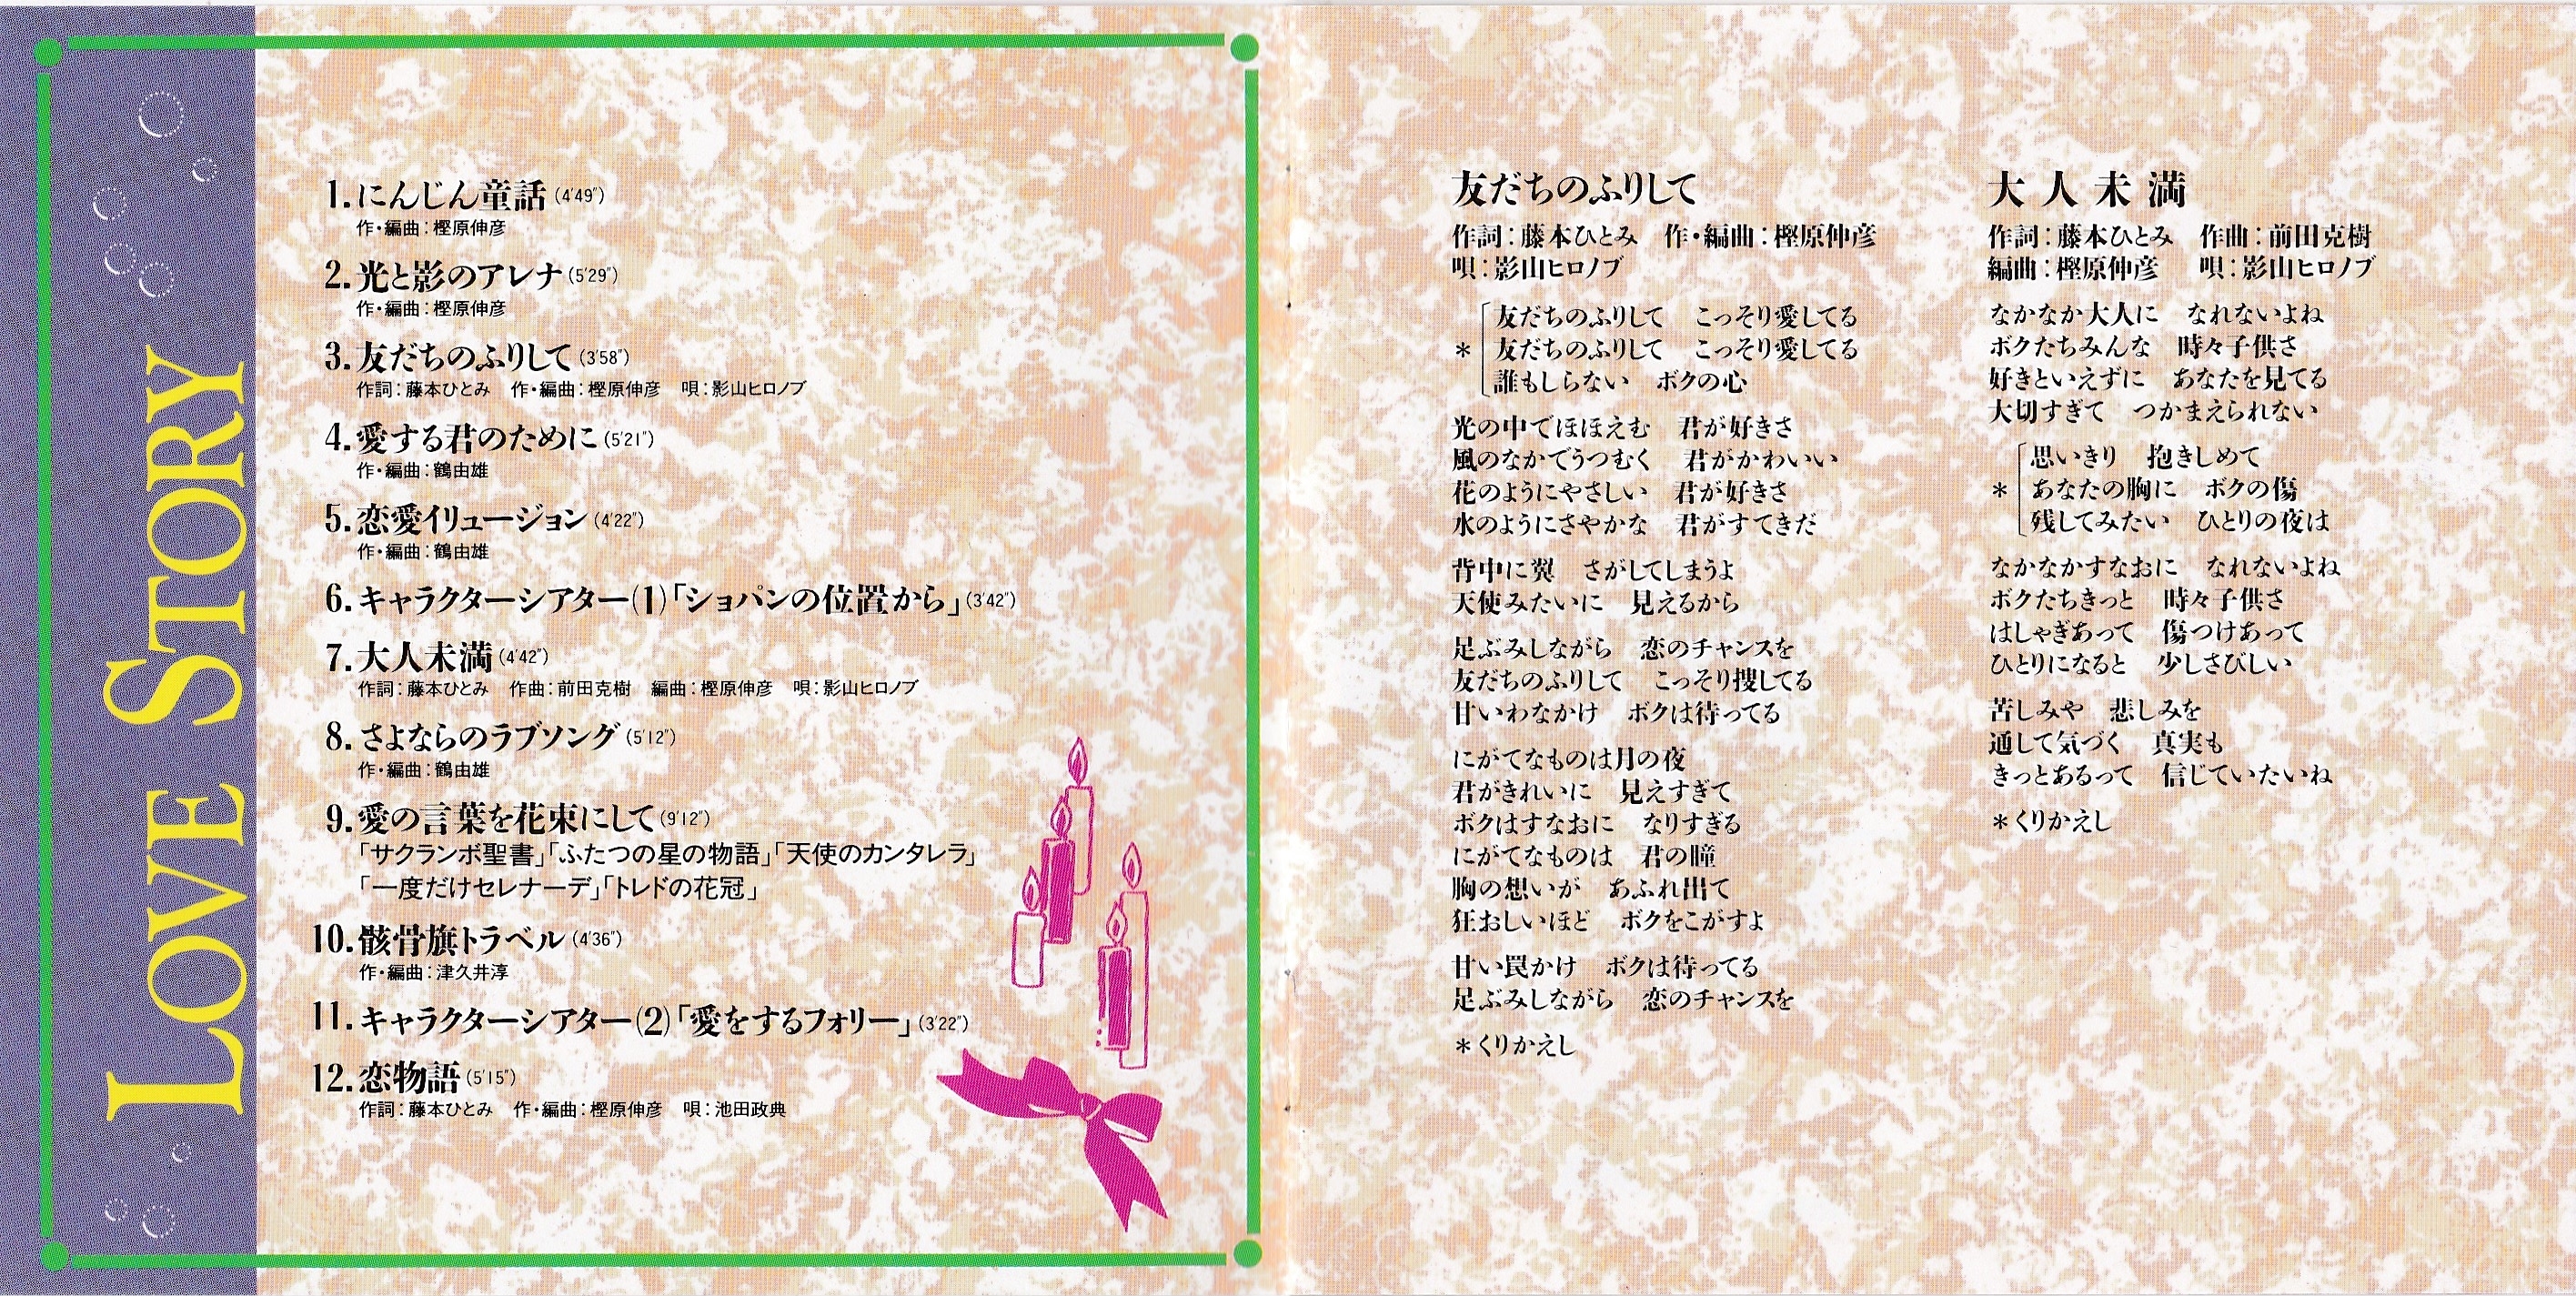 LOVE STORY
1.にんじん童話(4'49")
作・編曲：樫原伸彦
2.光と影のアレナ(5'29")
作・編曲：樫原伸彦
3.友だちのふりして(3'58")
作詞：藤本ひとみ　作・編曲：樫原伸彦　唄：影山ヒロノブ
4.愛する君のために(5'21")
作・編曲：鶴由雄
5.恋愛イリュージョン(4'22")
作・編曲：鶴由雄
6.キャラクターシアター(1)「ショパンの位置から」(3'42")
7.大人未満(4'42")
作詞：藤本ひとみ　作曲：前田克樹　編曲：樫原伸彦　唄：影山ヒロノブ
8.さよならのラブソング(5'12")
作・編曲：鶴由雄
9.愛の言葉を花束にして(9'12")
「サクランボ聖書」「ふたつの星の物語」「天使のカンタレラ」
「一度だけセレナーデ」「トレドの花冠」
10.骸骨旗トラベル(4'36")
作・編曲：津久井淳
11.キャラクターシアター(2)「愛をするフォリー」(3'22")
12.恋物語(5'15")
作詞：藤本ひとみ　作・編曲：樫原伸彦　唄：池田政典
友だちのふりして
作詞：藤本ひとみ　作・編曲：樫原伸彦
唄：影山ヒロノブ
友だちのふりして　こっそり愛してる
＊友だちのふりして　こっそり愛してる
誰もしらない　ボクの心
光の中でほほえむ　君が好きさ
風のなかでうつむく　君がかわいい
花のようにやさしい　君が好きさ
水のようにさやかな　君がすてきだ
背中に翼　さがしてしまうよ
天使みたいに　見えるから
足ぶみしながら　恋のチャンスを
友だちのふりして　こっそり捜してる
甘いわなかけ　ボクは待ってる
にがてなものは月の夜
君がきれいに　見えすぎて
ボクはすなおに　なりすぎる
にがてなものは　君の瞳
胸の想いが　あふれ出て
狂おしいほど　ボクをこがすよ
甘い罠かけ　ボクは待ってる
足ぶみしながら　恋のチャンスを
＊くりかえし
大人未満
作詞：藤本ひとみ　作曲：前田克樹
編曲：樫原伸彦　唄：影山ヒロノブ
なかなか大人に　なれないよね
ボクたちみんな　時々子供さ
好きといえずに　あなたを見てる
大切すぎて　つかまえられない
思いきり　抱きしめて
＊あなたの胸に　ボクの傷
残してみたい　ひとりの夜は
なかなかすなおに　なれないよね
ボクたちきっと　時々子供さ
はしゃぎあって　傷つけあって
ひとりになると　少しさびしい
苦しみや　悲しみを
通して気づく　真実も
きっとあるって　信じていたいね
＊くりかえし